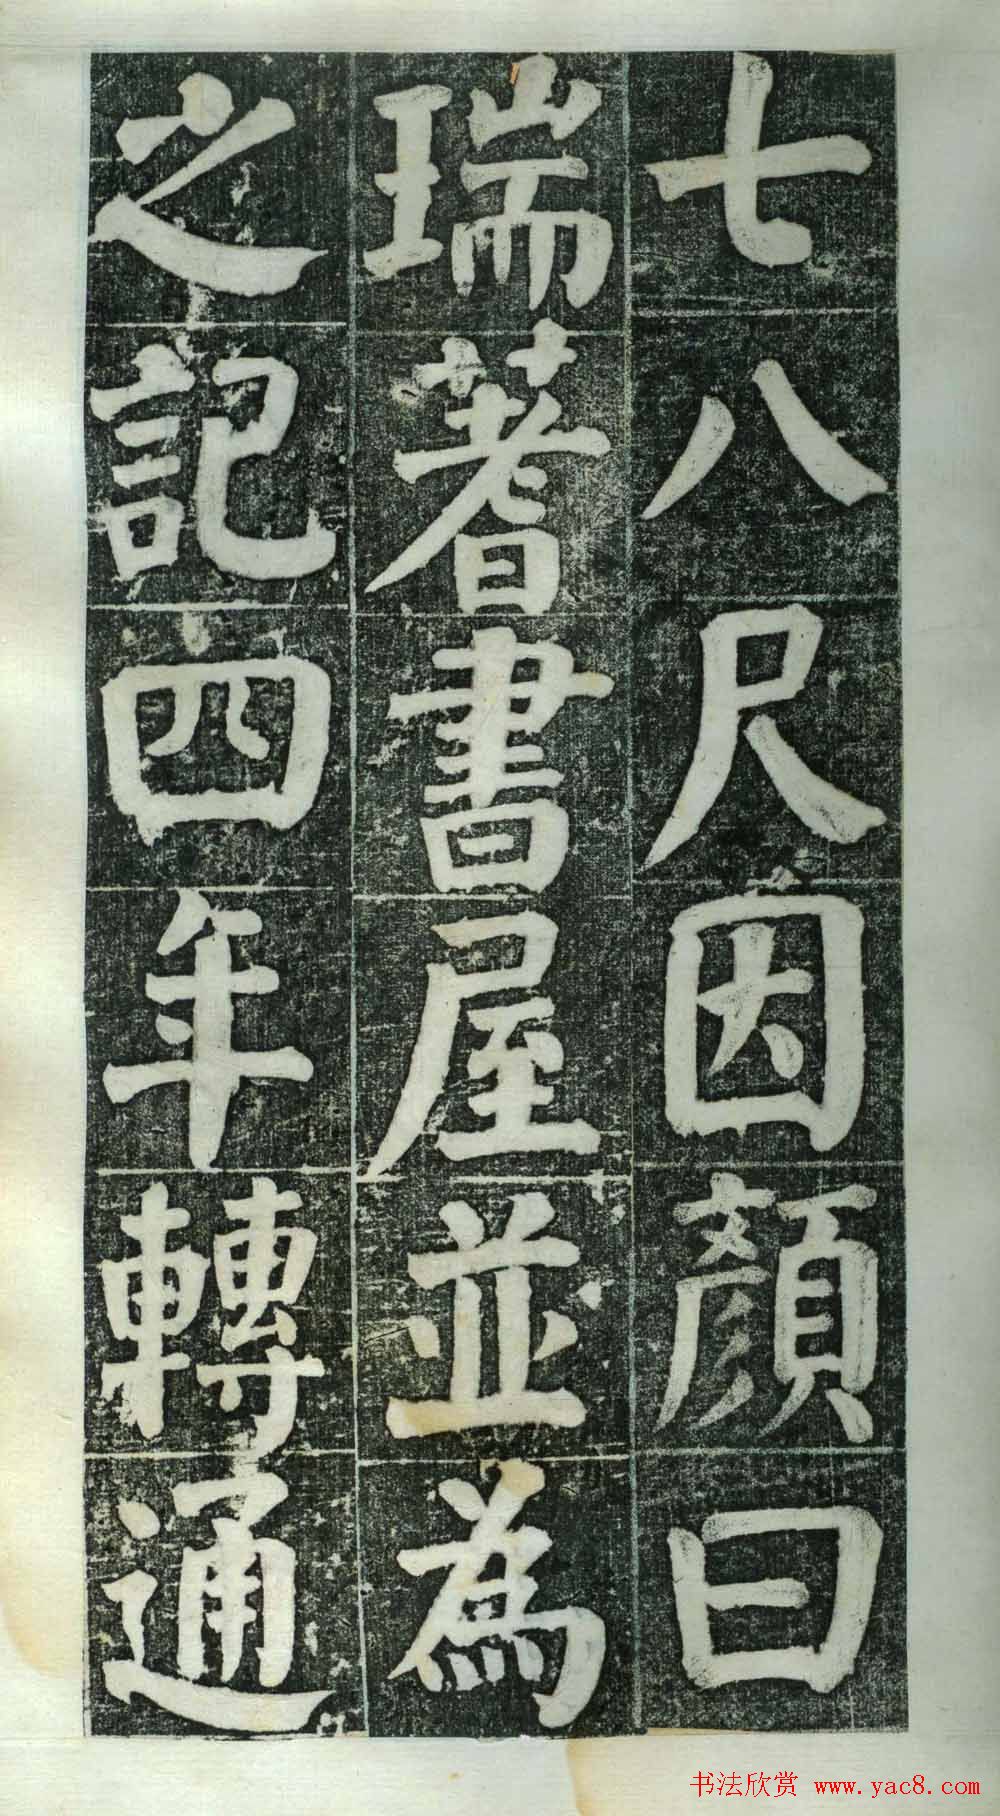 七八尺因顏曰
瑞蓍書屋並為
之記四年轉通
书法欣赏 www.yac8.com